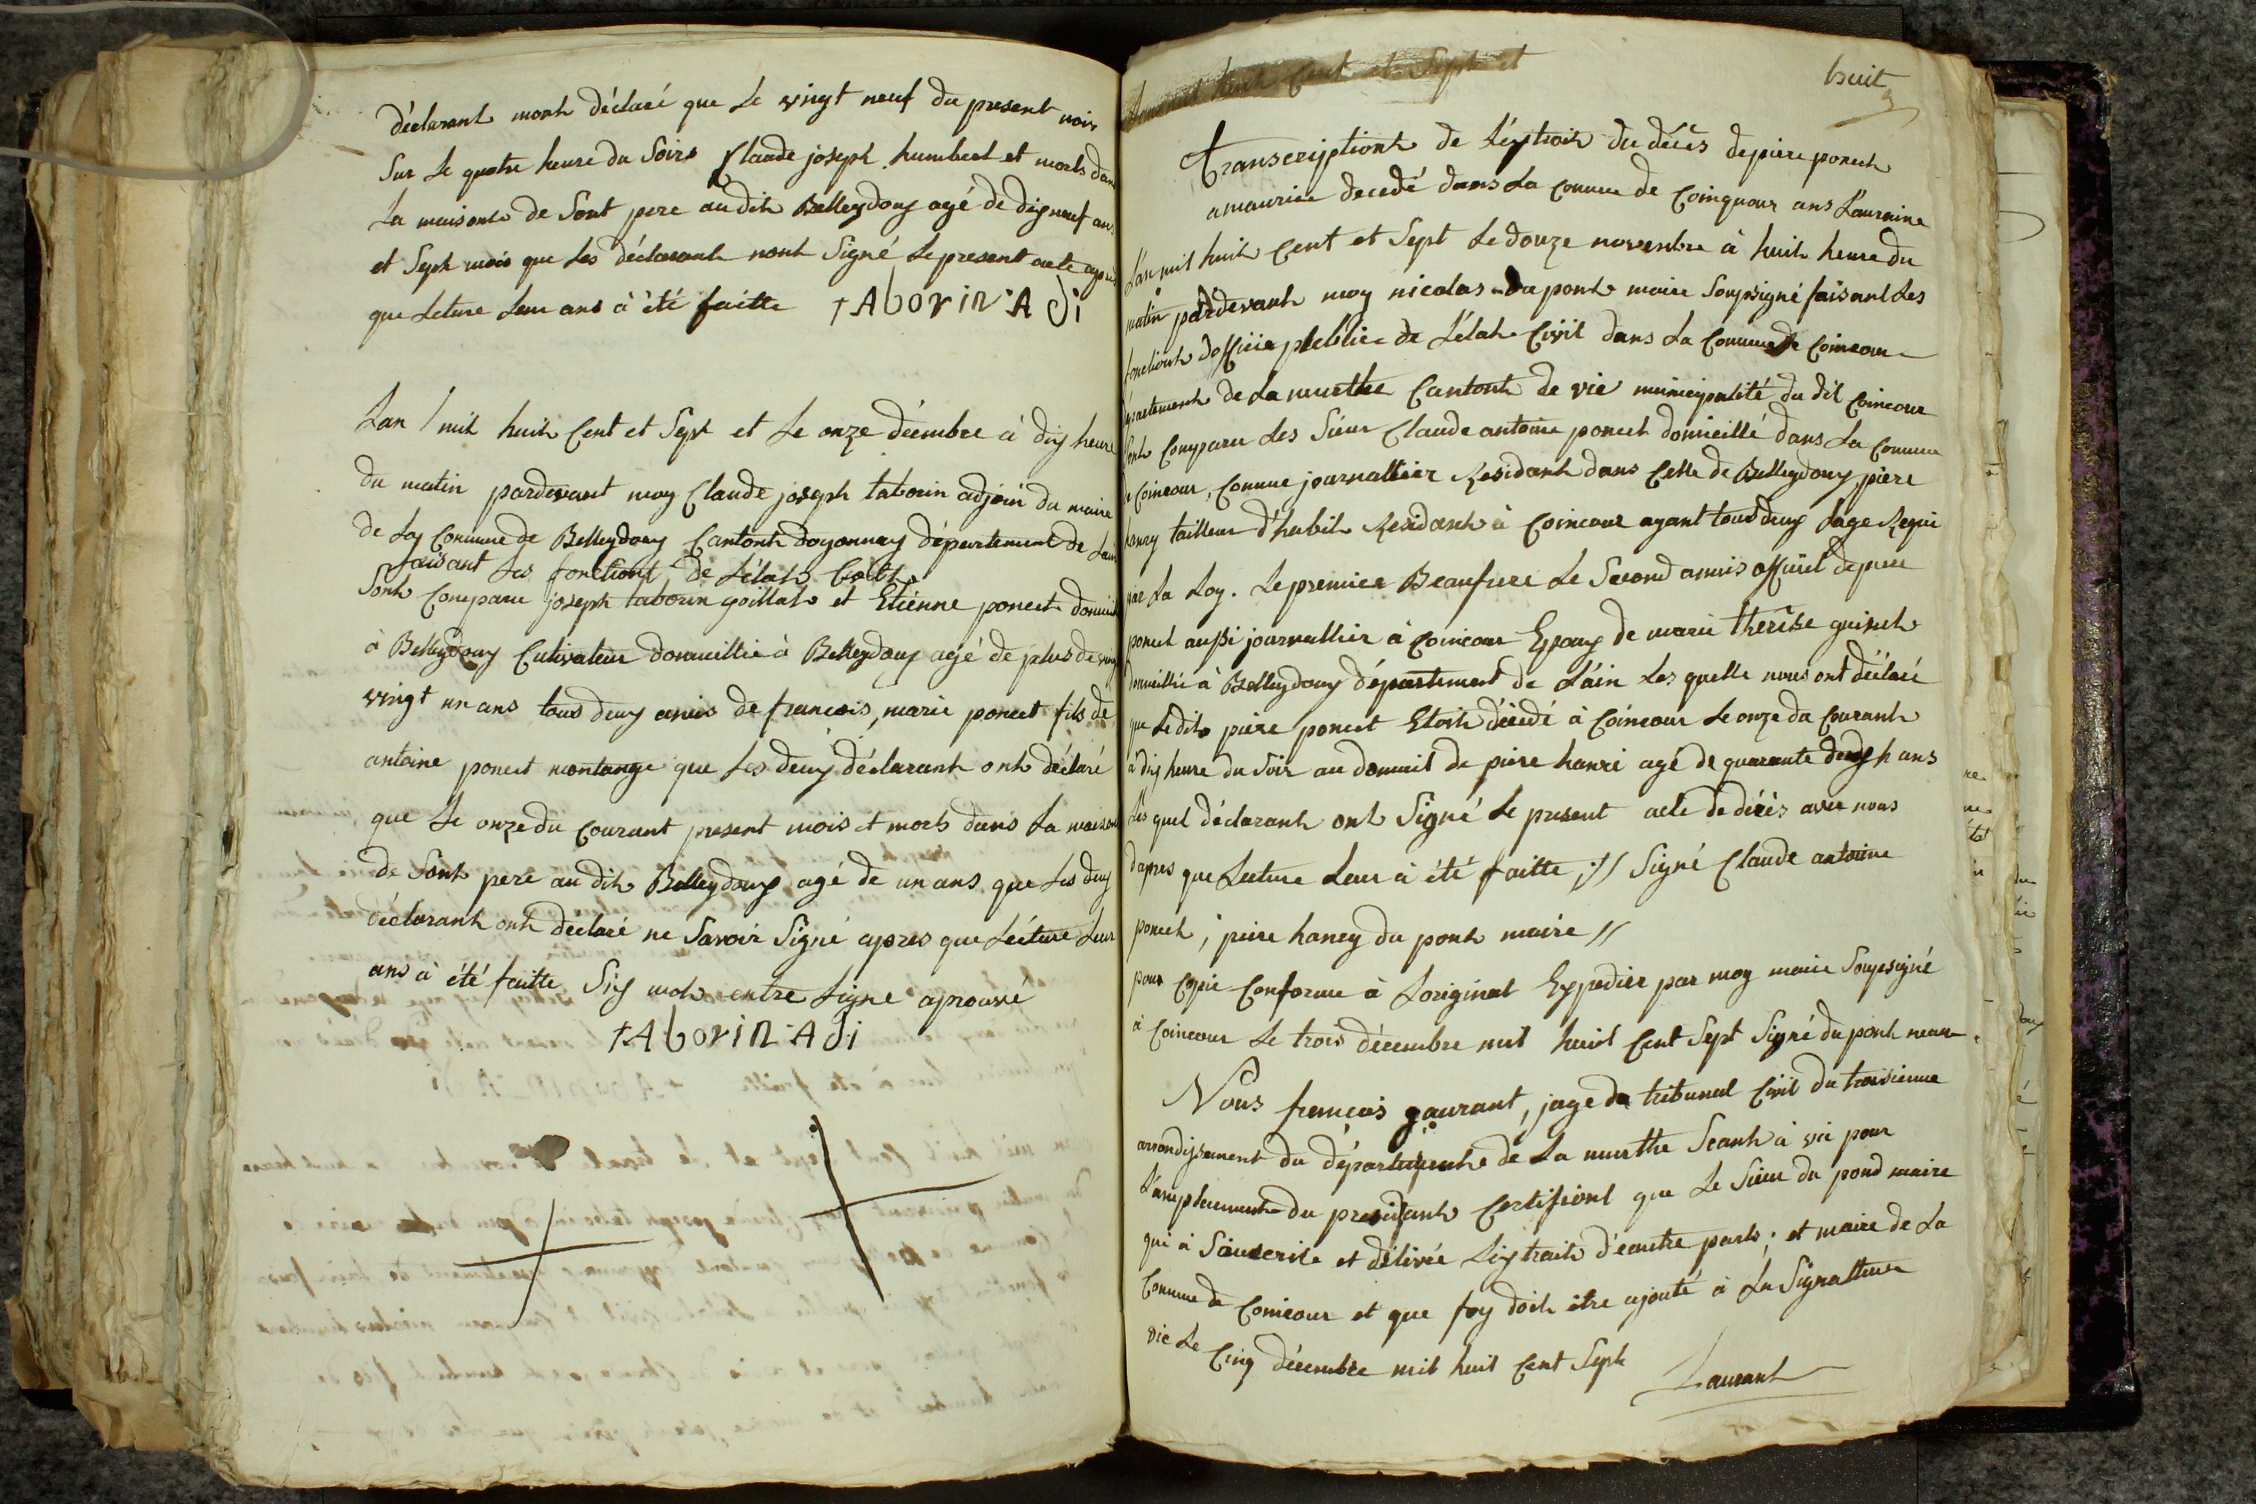 déclarant monh déclaré que Le vingt neuf du present mois
Sur Le quatre heure du Soire Claude joseph humbert et morts dans
La maisonts de Sont pere au dit Belleydoux agé de dix neuf ans
et Sept mois que Les déclarant nont Signé Le present acte apres
que Leture Leur ans à été faitte tAborin Adi
Lan mil huit Cent et Sept et Le onze décembre à dix heure
du matin pardevant moy Claude joseph taborin adjoin du maire
de La Commune de Belleydoux Cantonh doyonnax département de Lain
faisant Les fonctions de Létat Civil
Sont Comparu joseph taborin goillat et Etiénne poncet
à Belleydoux Cultivateur domicillié à Belleydoux agé de plus de
vingt un ans tous deux amis de francois marie poncet fils de
antoine poncet montange que Les deux déclarant onh déclaré
que Le onze du Courant present mois et morts dans La maison
de Sonh pere au dit Belleydoux agé de un ans que Les deux
déclarant onh déclaré ne Savoir Signé apres que Lecture Leur
ans à été faitte Six mots entre Ligne aprouvé
tAborin Adi
huit Cent et Sept et
huit
Transcriptionh de Léxtrait du décès de piere poncet
decedé dans La Commune de
Lan mil huit Cent et Sept Le douze novembre à huit heure du
matin pardevant moy nicolas du pont maire Soupsigné faisant Les
fonctionh dofficie pleblic de Létat Civil dans La Commune de Coincour
département de La murthe Cantonh de vic municipalité du dit Coincour
Sont Comparu Les Sieur Claude antoine poncet domicillé dans La Commune
de Coincour, Comme journallier Residant dans Celle de Belleydoux, piere
hanry tailleur d'habit Residant à Coincour ayant tous deux Lage Requi
par La Loy. Le premier Beaufrere Le Second amis officiel de piere
poncet aussi journallier à Coincour Epoux de marie therése guinet
domicillié à Belleydoux département de Láin Les quelle nous ont déclaré
que Ledit piere poncet Etoit décédé à Coincour Le onze du Courant
à dix heure du Soir au domicil de piere hanri agé de quarante ans
Les quel déclarant ont Signé Le present acte de décès avec nous
dapres que Lecture Leur à été faitte ;// Signé Claude antoine
poncet ; piere hanry du pont maire //
pour Copie Conforme à Loriginal Expedier par moy maire Soupsigné
à Coincour Le trois décembre mil huit Cent Sept Signé du pont maire.
Nous francois gaurant, juge du tribunal Civil du troisieme
arrondissement du département de La murthe Seanh à vic pour
Lempechement du president Certifiont que Le Sieur du pond maire
qui à Souscrite et délivré Léxtrait d'eautre parts; et maire de La
Commune de Coincour et que foy doit être ajouté à La Signatture
vic Le Cinq décembre mil huit Cent Sept
Laurant